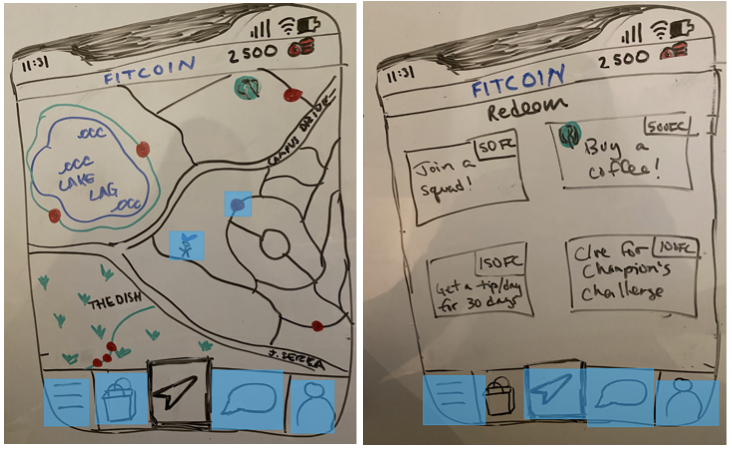 11:31
2500
FITCOIN
CAMPUS DRIVE
LAKE
LAG
THE DISH
J. SERRA
11:31
2500
FITCOIN
Redeem
50FC
Join a
squad!
500FC
Buy a
coffee!
150FC
Get a tip/day
for 30 days
100FC
Clue for
Champion's
challenge